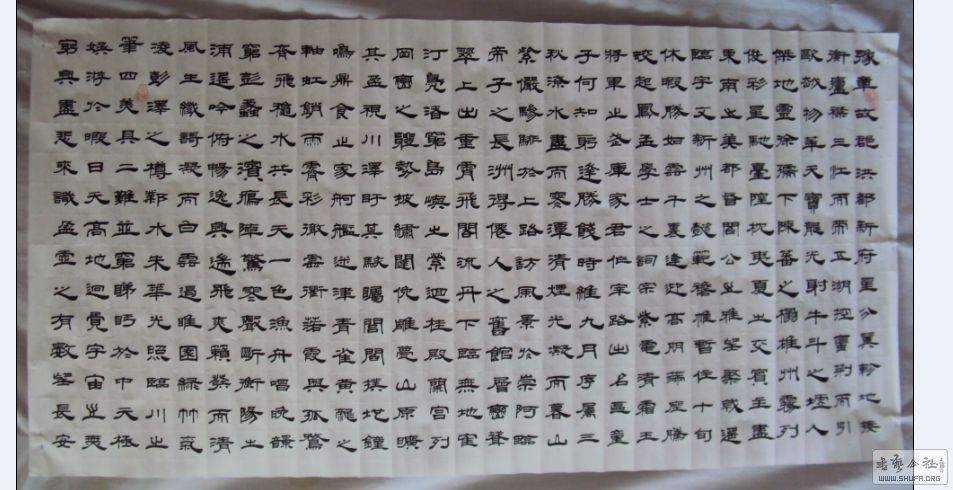 豫章故郡洪都新府星分翼軫地接
衡廬襟三江而帶五湖控蠻荊而引
甌越物華天寶龍光射牛斗之墟人
傑地靈徐孺下陳蕃之榻雄州霧列
俊彩星馳臺隍枕夷夏之交賓主盡
東南之美都督閻公之雅望棨戟遥
臨宇文新州之懿範襜帷暫住十旬
休暇勝如雲千里逢迎高朋滿座騰
蛟起鳳孟學士之詞宗紫電青霜王
將軍之武庫家君作宰路出名區童
子何知躬逢勝餞時維九月序屬三
秋潦水盡而寒潭清煙光凝而暮山
紫儼驂騑於上路訪風景於崇阿臨
帝子之長洲得僊人之舊館層巒聳
翠上出重霄飛閣流丹下臨無地隺
汀鳧渚窮島嶼之縈迴桂殿蘭宮列
岡巒之體勢披繡闥俯雕甍山原曠
其盈視川澤盱其駭矚閭閻撲地鐘
鳴鼎食之家舸艦迷津青雀黃龍之
軸虹銷雨霽彩徹雲衢落霞與孤鶩
齊飛秋水共長天一色漁舟唱晚響
窮彭蠡之濱鴈陣驚寒聲斷衡陽之
浦遥吟俯暢逸興遄飛爽籟發而清
風生纖歌凝而白雲遏睢園綠竹氣
凌彭澤之樽鄴水朱華光照臨川之
筆四美具二難並窮睇眄於中天極
娛游於暇日天高地迥覺宇宙之無
窮興盡悲來識盈虛之有數望長安
WWW.SHUFA.ORG